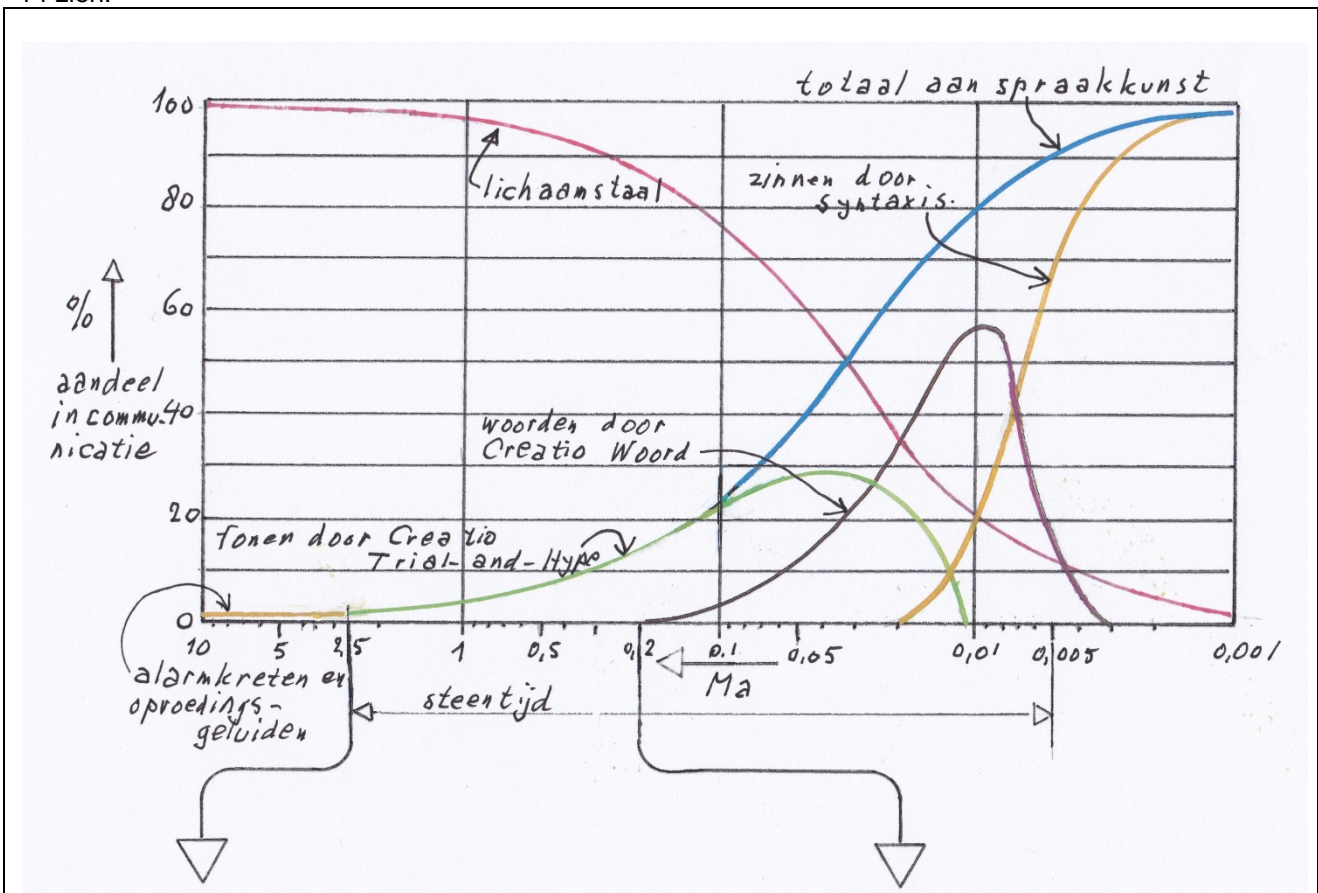 totaal aan spraakkunst
zinnen door
syntaxis.
lichaamstaal
100
80
60
40
20
0
%
aandeel
in commu-
nicatie
woorden door
Creatio Woord
Tonen door Creatio
Trial-and-Hype
10
5
2,5
1
0,5
0,2
0.1
0,05
0,01
0,005
0,001
Ma
alarmkreten en
opvoedings-
geluiden
steentijd